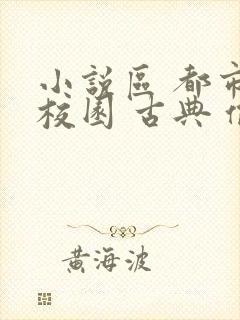 小說區 都市
校園 古典
黃海波